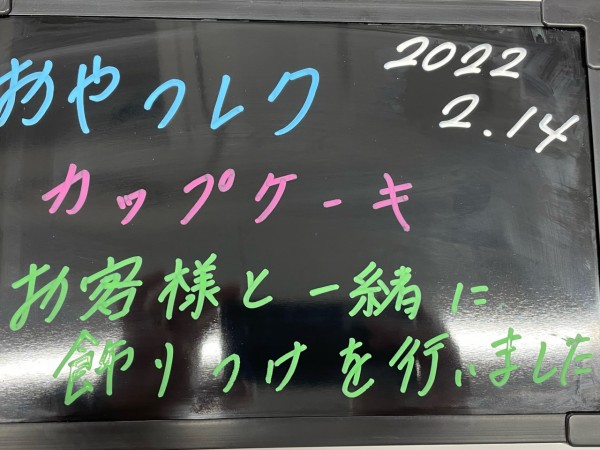 おやつレク
2022
2.14
カップケーキ
お客様と一緒に
飾りつけを行いました